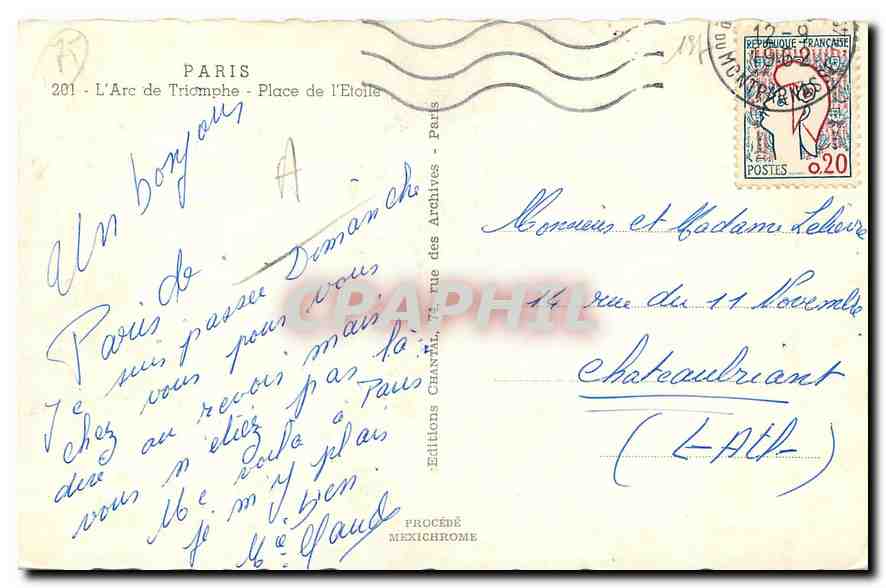 75
PARIS
201 - L'Arc de Triomphe - Place de l'Etoile
A
Un bonjour
de
Paris
Je suis passée Dimanche
chez vous pour vous
dire au revoir mais
vous n'étiez pas là
Me voilà à Paris
je m'y plais
bien
Editions CHANTAL, 74, rue des Archives - Paris
PROCÉDÉ
MEXICHROME
12-9
1962
MONTPARNASSE
REPUBLIQUE FRANÇAISE
POSTES 0,20
Monsieur et Madame Lelièvre
14 rue du 11 Novembre
Chateaubriant
(L-Atl-)
CPAPHIL